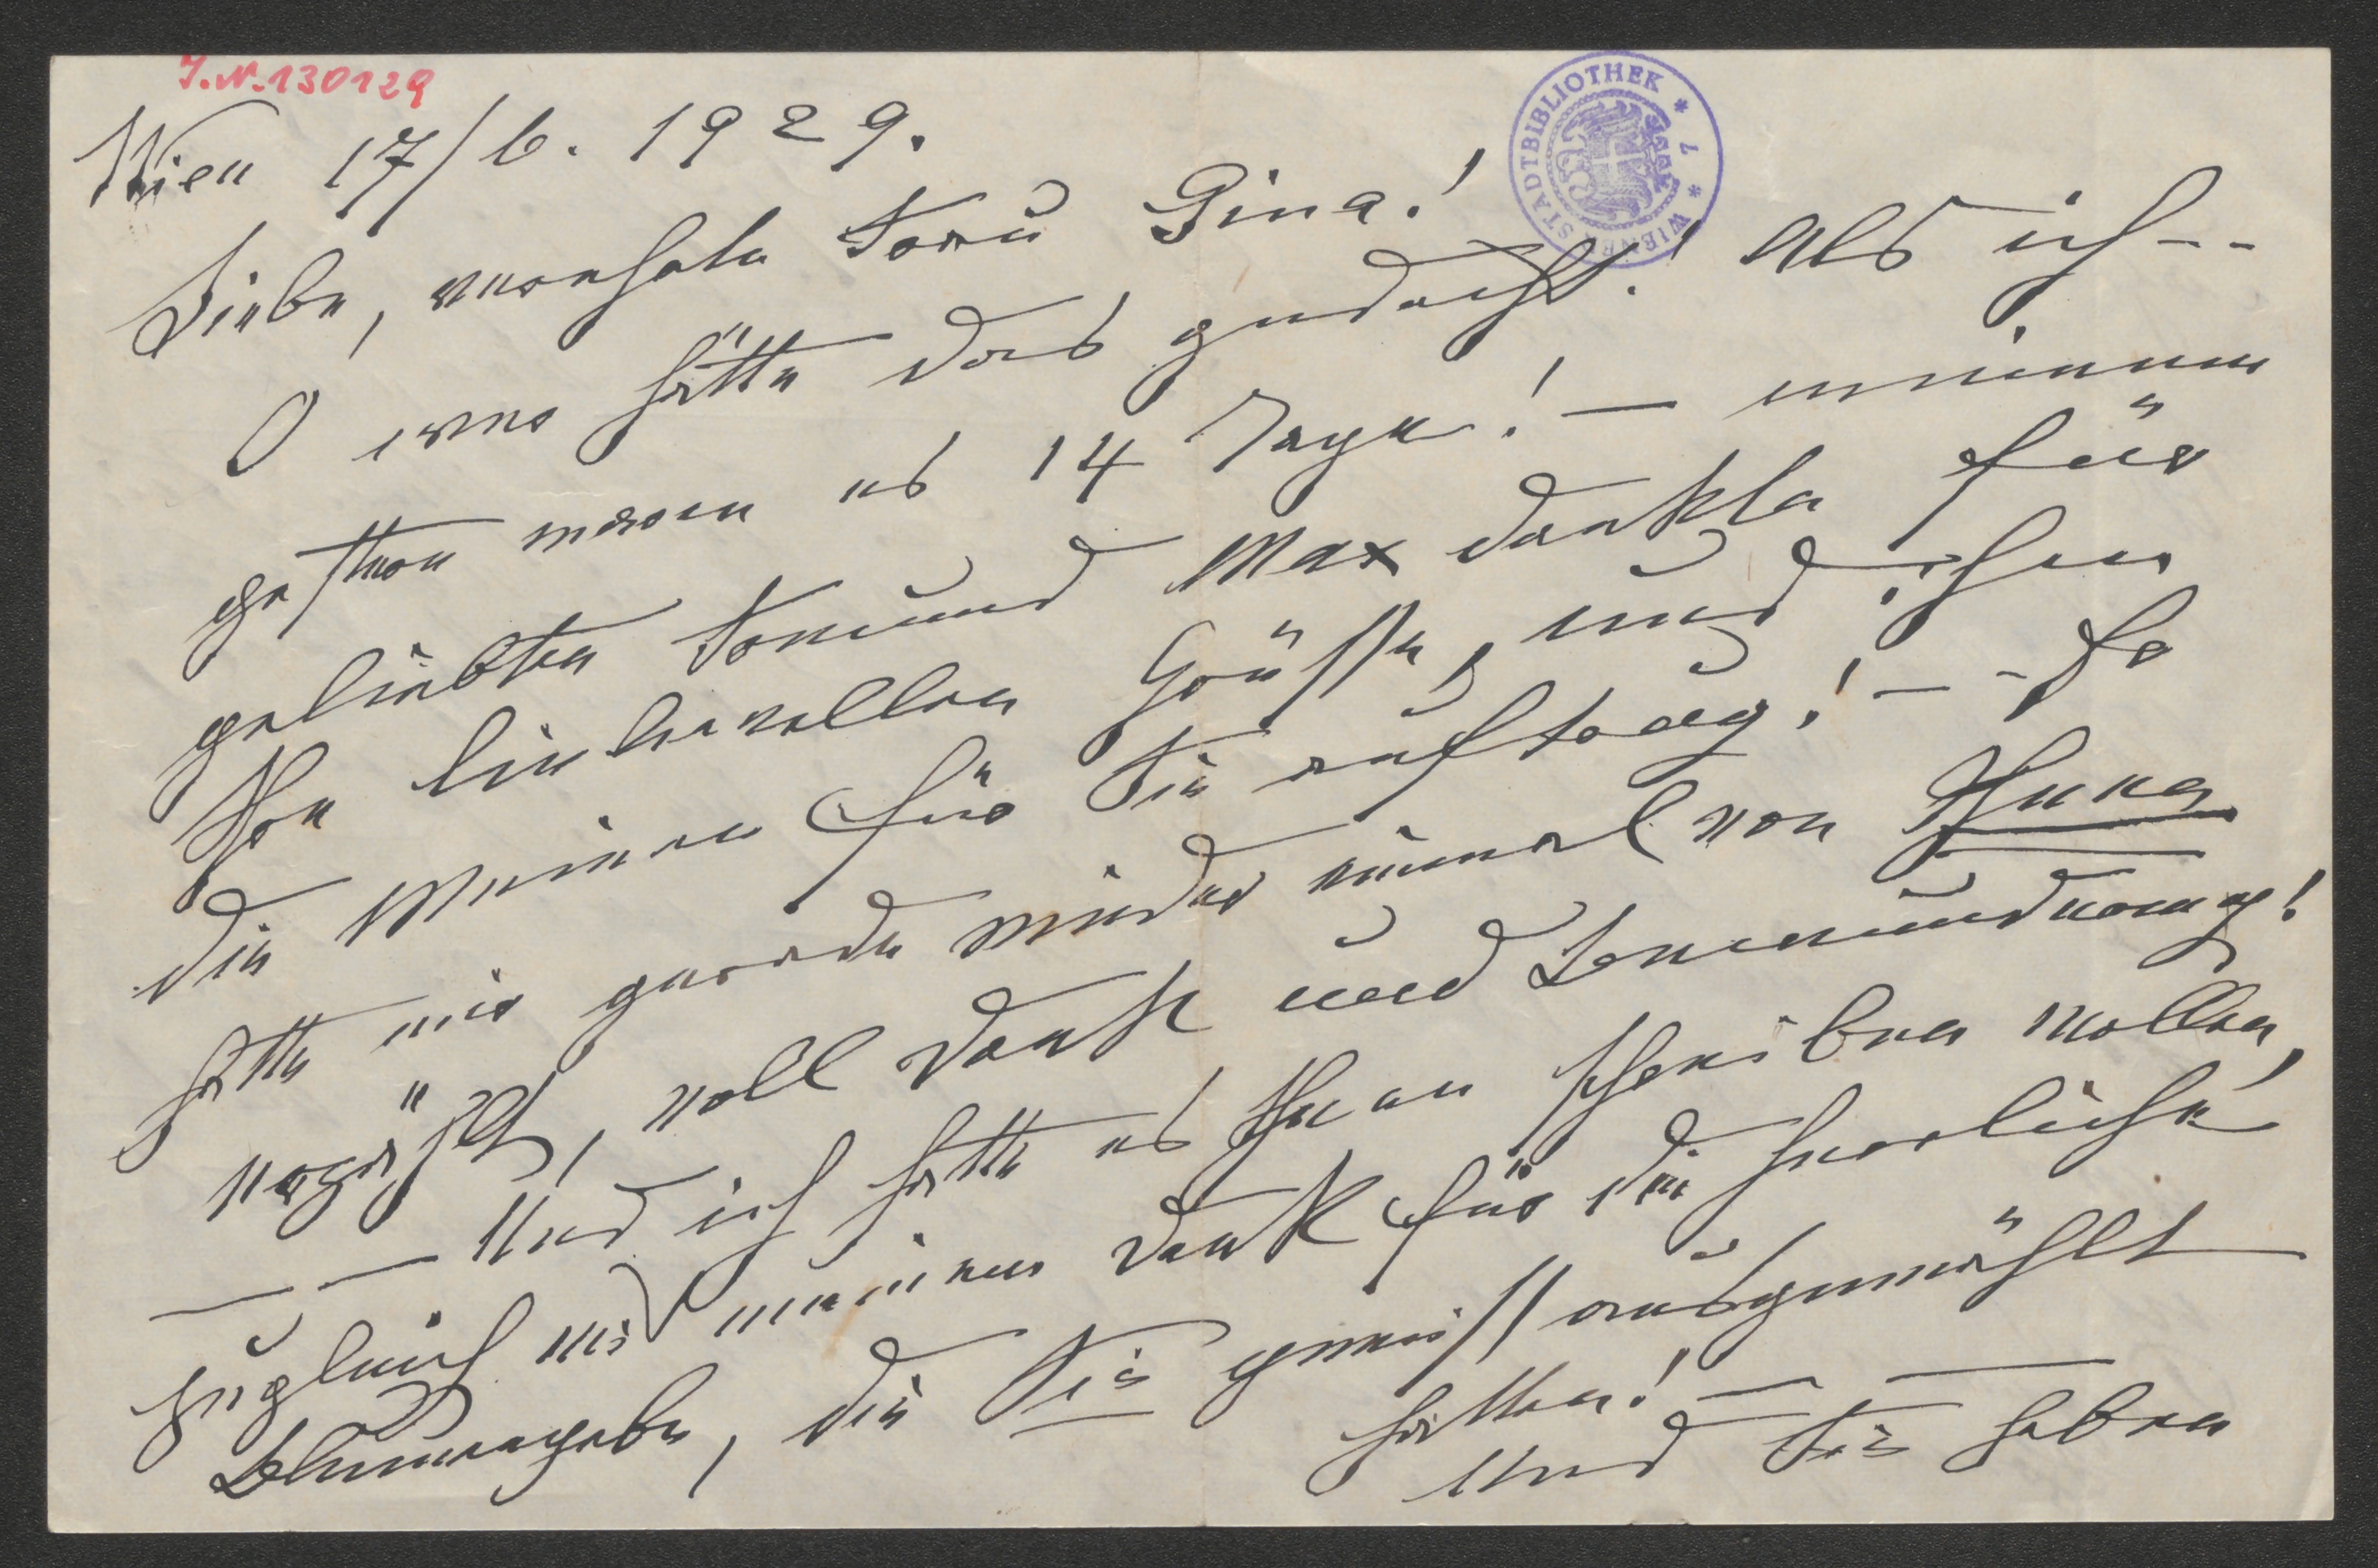 J.N. 130129
WIENER STADTBIBLIOTHEK * 7 *
Wien 17/6. 1929.
Liebe, verehrte Frau Gina!
O wer hätte das gedacht! Als ich--
gestern waren es 14 Tage! — meinem
geliebten Freund Max dankte für
die liebevollen Grüsse, und ihm
die Meinen für Sie auftrug! — - Er
hatte mir gerade wieder einmal von Ihnen
erzählt, voll Dank und Bewunderung!
— — Und ich hatte es Ihnen schreiben wollen,
zugleich mit meinem Dank für die herrliche
Blumengabe, die Sie gewiss ausgewählt
hatten! — —
Und Sie haben